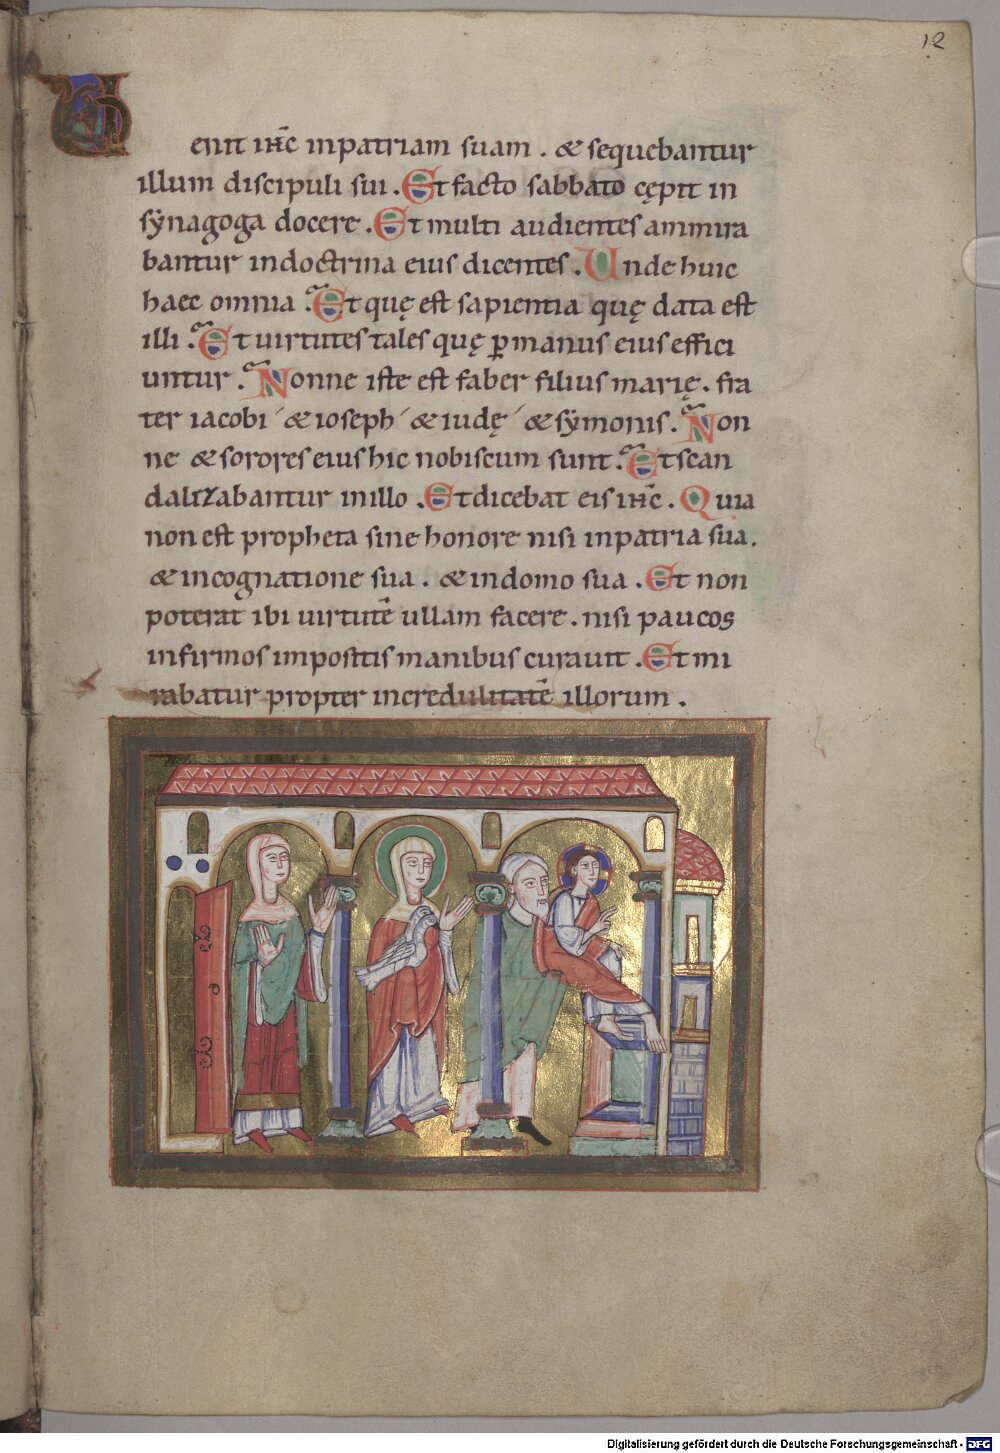 12
Uenit ihc inpatriam suam . & sequebantur
illum discipuli sui . Et facto sabbato cępit in
sẏnagoga docere . Et multi audientes ammira
bantur indoctrina eius dicentes . Unde huic
haec omnia . Et quę est sapientia quę data est
illi . Et uirtutes tales quę ꝑ manus eius effici
untur . Nonne iste est faber filius marię . fra
ter iacobi & ioseph & iudę & sẏmonis . Non
ne & sorores eius hic nobiscum sunt . Et scan
dalizabantur inillo . Et dicebat eis ihc . Quia
non est propheta sine honore nisi inpatria sua .
& incognatione sua . & indomo sua . Et non
poterat ibi uirtutē ullam facere . nisi paucos
infirmos impositis manibus curauit . Et mi
rabatur propter incredulitatē illorum .
Digitalisierung gefördert durch die Deutsche Forschungsgemeinschaft - DFG